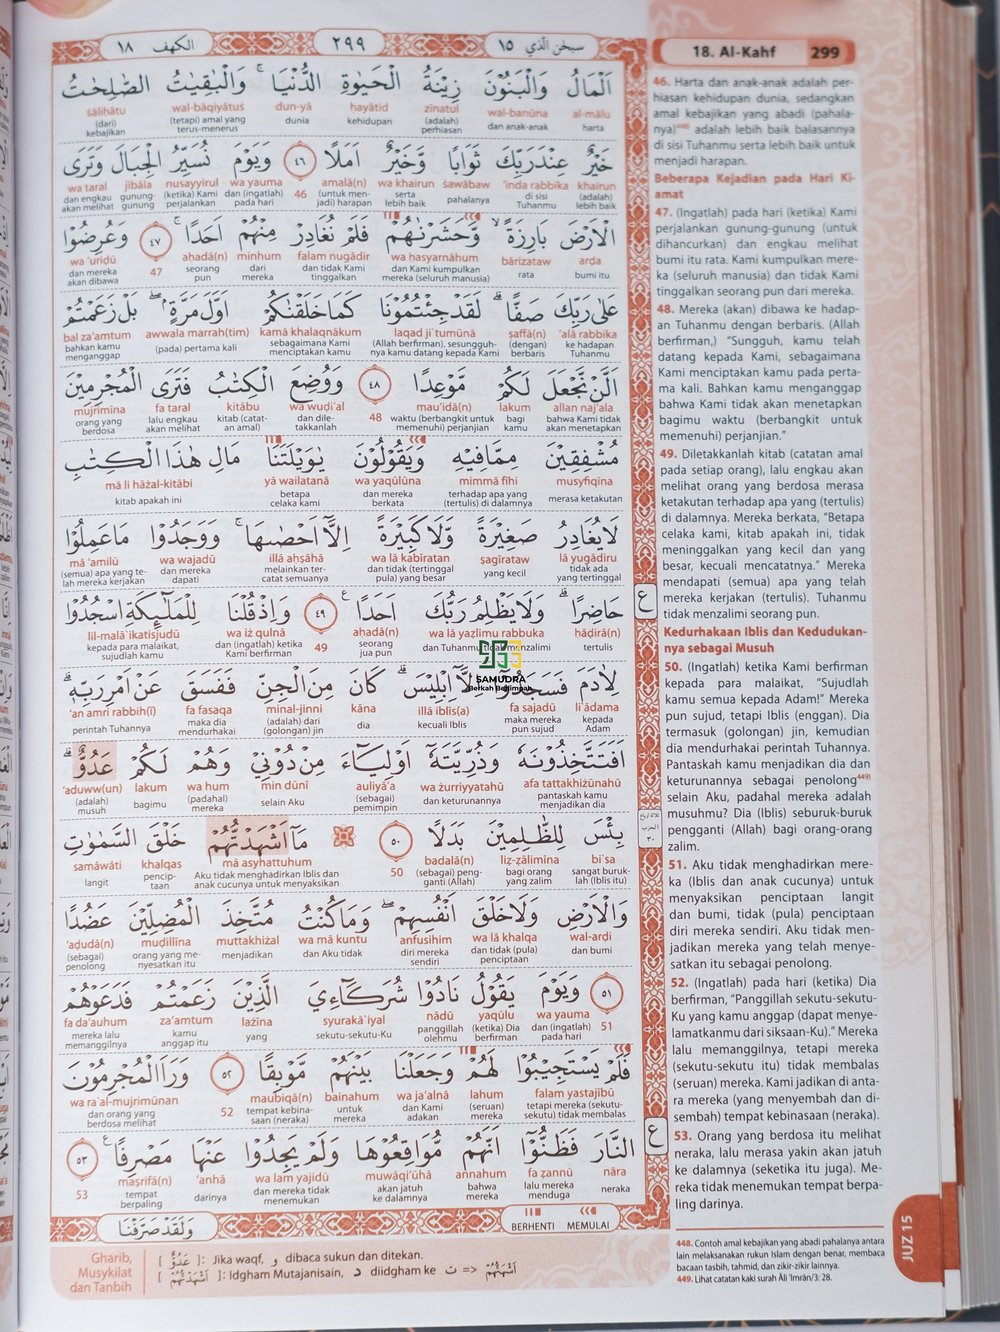 سبحن الّذي ١٥
٢٩٩
الكهف ١٨
اَلْمَالُ وَالْبَنُوْنَ زِيْنَةُ الْحَيٰوةِ الدُّنْيَاۚ وَالْبٰقِيٰتُ الصّٰلِحٰتُ
al-mālu wal-banūna zīnatul ḥayātid dun-yā wal-bāqiyātuṣ ṣāliḥātu
harta dan anak-anak (adalah) perhiasan kehidupan dunia (tetapi) amal yang terus-menerus (dari) kebajikan
خَيْرٌ عِنْدَ رَبِّكَ ثَوَابًا وَّخَيْرٌ اَمَلًا ٤٦ وَيَوْمَ نُسَيِّرُ الْجِبَالَ وَتَرَى
khairun 'inda rabbika ṡawābaw wa khairun amalā(n) 46 wa yauma nusayyirul jibāla wa taral
(adalah) lebih baik di sisi Tuhanmu pahalanya serta lebih baik (untuk menjadi) harapan dan (ingatlah) pada hari (ketika) Kami perjalankan gunung-gunung dan engkau akan melihat
الْاَرْضَ بَارِزَةًۙ وَّحَشَرْنٰهُمْ فَلَمْ نُغَادِرْ مِنْهُمْ اَحَدًاۚ ٤٧ وَعُرِضُوْا
arḍa bārizataw wa ḥasyarnāhum falam nugādir minhum aḥadā(n) 47 wa 'uriḍū
bumi itu rata dan Kami kumpulkan mereka (seluruh manusia) dan tidak Kami tinggalkan dari mereka seorang pun dan mereka akan dibawa
عَلٰى رَبِّكَ صَفًّاۗ لَقَدْ جِئْتُمُوْنَا كَمَا خَلَقْنٰكُمْ اَوَّلَ مَرَّةٍۢ ۖ بَلْ زَعَمْتُمْ
'alā rabbika ṣaffā(n) laqad ji`tumūnā kamā khalaqnākum awwala marrah(tim) bal za'amtum
ke hadapan Tuhanmu (dengan) berbaris (Allah berfirman), sesungguhnya kamu datang kepada Kami sebagaimana Kami menciptakan kamu (pada) pertama kali bahkan kamu menganggap
اَلَّنْ نَّجْعَلَ لَكُمْ مَّوْعِدًا ٤٨ وَوُضِعَ الْكِتٰبُ فَتَرَى الْمُجْرِمِيْنَ
allan naj'ala lakum mau'idā(n) 48 wa wuḍi'al kitābu fa taral mujrimīna
bahwa Kami tidak akan menetapkan bagi kamu waktu (berbangkit untuk memenuhi) perjanjian dan diletakkanlah kitab (catatan amal) lalu engkau akan melihat orang yang berdosa
مُشْفِقِيْنَ مِمَّا فِيْهِ وَيَقُوْلُوْنَ يٰوَيْلَتَنَا مَالِ هٰذَا الْكِتٰبِ
musyfiqīna mimmā fīhi wa yaqūlūna yā wailatanā mā li hāżal-kitābi
merasa ketakutan terhadap apa yang (tertulis) di dalamnya dan mereka berkata betapa celaka kami kitab apakah ini
لَا يُغَادِرُ صَغِيْرَةً وَّلَا كَبِيْرَةً اِلَّآ اَحْصٰىهَاۚ وَوَجَدُوْا مَا عَمِلُوْا
lā yugādiru ṣagīrataw wa lā kabīratan illā aḥṣāhā wa wajadū mā 'amilū
tidak ada yang tertinggal yang kecil dan tidak (tertinggal pula) yang besar melainkan tercatat semuanya dan mereka dapati (semua) apa yang telah mereka kerjakan
حَاضِرًاۗ وَلَا يَظْلِمُ رَبُّكَ اَحَدًا ٤٩ وَاِذْ قُلْنَا لِلْمَلٰۤىِٕكَةِ اسْجُدُوْا
ḥāḍirā(n) wa lā yaẓlimu rabbuka aḥadā(n) 49 wa iż qulnā lil-malā`ikatisjudū
tertulis dan Tuhanmu tidak menzalimi seorang jua pun dan (ingatlah) ketika Kami berfirman kepada para malaikat, sujudlah kamu
لِاٰدَمَ فَسَجَدُوْٓا اِلَّآ اِبْلِيْسَۗ كَانَ مِنَ الْجِنِّ فَفَسَقَ عَنْ اَمْرِ رَبِّهٖۗ
li`ādama fa sajadū illā iblīs(a) kāna minal-jinni fa fasaqa 'an amri rabbih(ī)
kepada Adam maka mereka pun sujud kecuali Iblis dia (adalah) dari (golongan) jin maka dia mendurhakai perintah Tuhannya
اَفَتَتَّخِذُوْنَهٗ وَذُرِّيَّتَهٗٓ اَوْلِيَاۤءَ مِنْ دُوْنِيْ وَهُمْ لَكُمْ عَدُوٌّۗ
afa tattakhiżūnahū wa żurriyyatahū auliyā'a min dūnī wa hum lakum 'aduww(un)
pantaskah kamu menjadikan dia dan keturunannya (sebagai) pemimpin selain Aku (padahal) mereka bagimu (adalah) musuh
بِئْسَ لِلظّٰلِمِيْنَ بَدَلًا ٥٠ مَآ اَشْهَدْتُّهُمْ خَلْقَ السَّمٰوٰتِ
bi`sa liẓ-ẓālimīna badalā(n) 50 mā asyhattuhum khalqas samāwāti
sangat buruklah (Iblis itu) bagi orang yang zalim (sebagai) pengganti (Allah) Aku tidak menghadirkan Iblis dan anak cucunya untuk menyaksikan penciptaan langit
وَالْاَرْضِ وَلَا خَلْقَ اَنْفُسِهِمْۖ وَمَا كُنْتُ مُتَّخِذَ الْمُضِلِّيْنَ عَضُدًا
wal-arḍi wa lā khalqa anfusihim wa mā kuntu muttakhiżal muḍillīna 'aḍudā(n)
dan bumi dan tidak (pula) penciptaan diri mereka sendiri dan Aku tidak menjadikan orang yang menyesatkan itu (sebagai) penolong
٥١ وَيَوْمَ يَقُوْلُ نَادُوْا شُرَكَاۤءِيَ الَّذِيْنَ زَعَمْتُمْ فَدَعَوْهُمْ
51 wa yauma yaqūlu nādū syurakā`iyal lażīna za'amtum fa da'auhum
dan (ingatlah) pada hari (ketika) Dia berfirman panggillah olehmu sekutu-sekutu-Ku yang kamu anggap itu mereka lalu memanggilnya
فَلَمْ يَسْتَجِيْبُوْا لَهُمْ وَجَعَلْنَا بَيْنَهُمْ مَّوْبِقًا ٥٢ وَرَاَ الْمُجْرِمُوْنَ
falam yastajībū lahum wa ja'alnā bainahum maubiqā(n) 52 wa ra`al-mujrimūnan
tetapi mereka (sekutu-sekutu) tidak membalas (seruan) mereka dan Kami adakan untuk mereka tempat kebinasaan (neraka) dan orang yang berdosa melihat
النَّارَ فَظَنُّوْٓا اَنَّهُمْ مُّوَاقِعُوْهَا وَلَمْ يَجِدُوْا عَنْهَا مَصْرِفًاࣖ ٥٣
nāra fa ẓannū annahum muwāqi'ūhā wa lam yajidū 'anhā maṣrifā(n) 53
neraka lalu mereka menduga bahwa mereka akan jatuh ke dalamnya dan mereka tidak menemukan darinya tempat berpaling
ع
ثلاثة ارباع الحزب ٣٠
ع
BERHENTI MEMULAI
وَلَقَدْ صَرَّفْنَا
Gharib, Musykilat dan Tanbih
[ عَدُوٌّ ]: Jika waqf, و dibaca sukun dan ditekan.
[ اَشْهَدْتُّهُمْ ]: Idgham Mutajanisain, د diidgham ke ت => اَشْهَتُّهُمْ
SAMUDRA
Berkah Berlimpah
18. Al-Kahf 299
46. Harta dan anak-anak adalah per-
hiasan kehidupan dunia, sedangkan
amal kebajikan yang abadi (pahala-
nya)448) adalah lebih baik balasannya
di sisi Tuhanmu serta lebih baik untuk
menjadi harapan.
Beberapa Kejadian pada Hari Ki-
amat
47. (Ingatlah) pada hari (ketika) Kami
perjalankan gunung-gunung (untuk
dihancurkan) dan engkau melihat
bumi itu rata. Kami kumpulkan mere-
ka (seluruh manusia) dan tidak Kami
tinggalkan seorang pun dari mereka.
48. Mereka (akan) dibawa ke hadap-
an Tuhanmu dengan berbaris. (Allah
berfirman,) “Sungguh, kamu telah
datang kepada Kami, sebagaimana
Kami menciptakan kamu pada perta-
ma kali. Bahkan kamu menganggap
bahwa Kami tidak akan menetapkan
bagimu waktu (berbangkit untuk
memenuhi) perjanjian.”
49. Diletakkanlah kitab (catatan amal
pada setiap orang), lalu engkau akan
melihat orang yang berdosa merasa
ketakutan terhadap apa yang (tertulis)
di dalamnya. Mereka berkata, “Betapa
celaka kami, kitab apakah ini, tidak
meninggalkan yang kecil dan yang
besar, kecuali mencatatnya.” Mereka
mendapati (semua) apa yang telah
mereka kerjakan (tertulis). Tuhanmu
tidak menzalimi seorang pun.
Kedurhakaan Iblis dan Kedudukan-
nya sebagai Musuh
50. (Ingatlah) ketika Kami berfirman
kepada para malaikat, “Sujudlah
kamu semua kepada Adam!” Mereka
pun sujud, tetapi Iblis (enggan). Dia
termasuk (golongan) jin, kemudian
dia mendurhakai perintah Tuhannya.
Pantaskah kamu menjadikan dia dan
keturunannya sebagai penolong449)
selain Aku, padahal mereka adalah
musuhmu? Dia (Iblis) seburuk-buruk
pengganti (Allah) bagi orang-orang
zalim.
51. Aku tidak menghadirkan mere-
ka (Iblis dan anak cucunya) untuk
menyaksikan penciptaan langit
dan bumi, tidak (pula) penciptaan
diri mereka sendiri. Aku tidak men-
jadikan mereka yang telah menye-
satkan itu sebagai penolong.
52. (Ingatlah) pada hari (ketika) Dia
berfirman, “Panggillah sekutu-sekutu-
Ku yang kamu anggap (dapat menye-
lamatkanmu dari siksaan-Ku).” Mereka
lalu memanggilnya, tetapi mereka
(sekutu-sekutu itu) tidak membalas
(seruan) mereka. Kami jadikan di anta-
ra mereka (yang menyembah dan di-
sembah) tempat kebinasaan (neraka).
53. Orang yang berdosa itu melihat
neraka, lalu merasa yakin akan jatuh
ke dalamnya (seketika itu juga). Me-
reka tidak menemukan tempat berpa-
ling darinya.
448. Contoh amal kebajikan yang abadi pahalanya antara
lain melaksanakan rukun Islam dengan benar, membaca
bacaan tasbih, tahmid, dan zikir-zikir lainnya.
449. Lihat catatan kaki surah Āli 'Imrān/3: 28.
JUZ 15